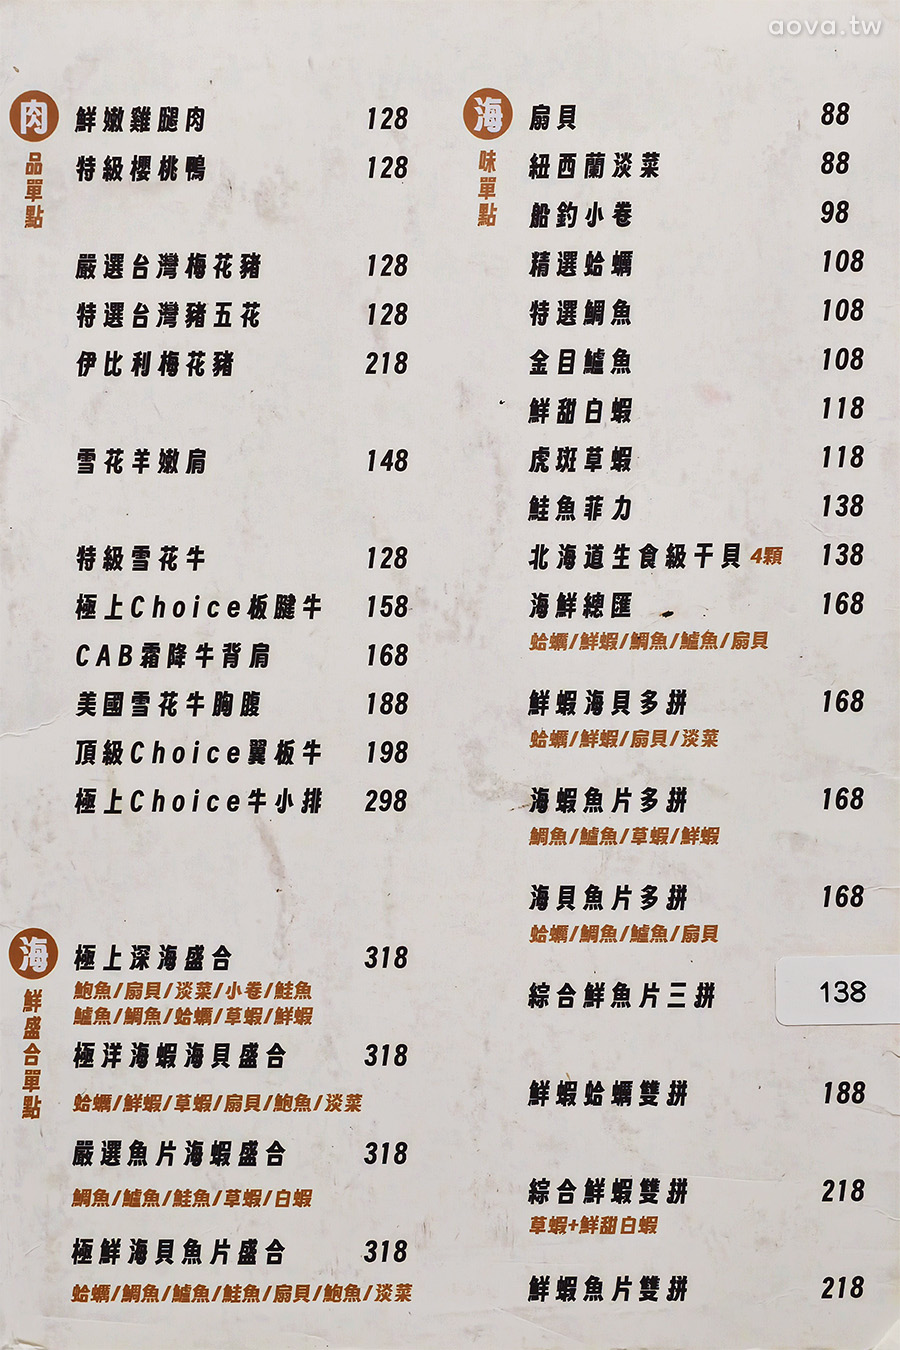 aova.tw
肉品單點
鮮嫩雞腿肉 128
特級櫻桃鴨 128
嚴選台灣梅花豬 128
特選台灣豬五花 128
伊比利梅花豬 218
雪花羊嫩肩 148
特級雪花牛 128
極上Choice板腱牛 158
CAB霜降牛背肩 168
美國雪花牛胸腹 188
頂級Choice翼板牛 198
極上Choice牛小排 298
海鮮盛合單點
極上深海盛合 318
鮑魚/扇貝/淡菜/小卷/鮭魚
鱸魚/鯛魚/蛤蠣/草蝦/鮮蝦
極洋海蝦海貝盛合 318
蛤蠣/鮮蝦/草蝦/扇貝/鮑魚/淡菜
嚴選魚片海蝦盛合 318
鯛魚/鱸魚/鮭魚/草蝦/白蝦
極鮮海貝魚片盛合 318
蛤蠣/鯛魚/鱸魚/鮭魚/扇貝/鮑魚/淡菜
海味單點
扇貝 88
紐西蘭淡菜 88
船釣小卷 98
精選蛤蠣 108
特選鯛魚 108
金目鱸魚 108
鮮甜白蝦 118
虎斑草蝦 118
鮭魚菲力 138
北海道生食級干貝 4顆 138
海鮮總匯 168
蛤蠣/鮮蝦/鯛魚/鱸魚/扇貝
鮮蝦海貝多拼 168
蛤蠣/鮮蝦/扇貝/淡菜
海蝦魚片多拼 168
鯛魚/鱸魚/草蝦/鮮蝦
海貝魚片多拼 168
蛤蠣/鯛魚/鱸魚/扇貝
綜合鮮魚片三拼 138
鮮蝦蛤蠣雙拼 188
綜合鮮蝦雙拼 218
草蝦+鮮甜白蝦
鮮蝦魚片雙拼 218